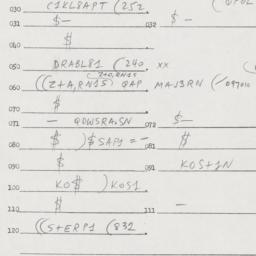 030 C1KL8APT (252
031 $- 032 $ -
040 $
050 DRABL81 (240 xx
060 ((Z+A,RN15) QAP MAJ3RN
070 $
071 - QDWSRA.SN 072 $-
080 $ )$ SAP1 = - 081 $
090 $ 091 KOS+1N
100 KO$ )KOS1
110 $ 111 -
120 ((S+ERP1 (832